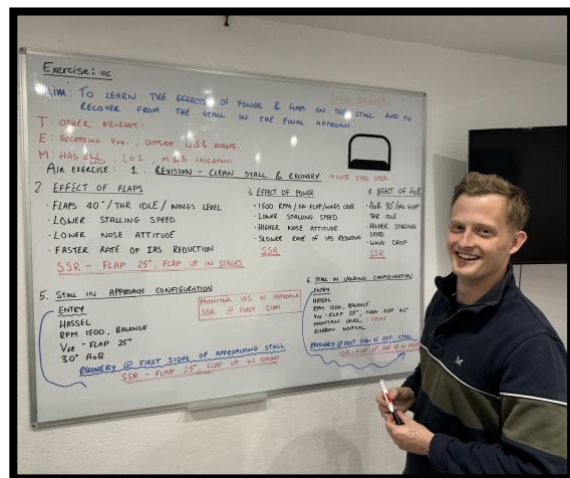 Exercise: 10c
Aim: TO LEARN THE EFFECTS OF POWER & FLAPS ON THE STALL AND TO
RECOVER FROM THE STALL IN THE FINAL APPROACH.
T: OTHER AIRCRAFT.
E: EXCEEDING VFE, OUTSIDE W&B
M: HASELL, LOI, M&B
AIR EXERCISE: 1. REVISION - CLEAN STALL & RECOVERY
2. EFFECT OF FLAPS
· FLAPS 40°/THR IDLE/WINGS LEVEL
· LOWER STALLING SPEED
· LOWER NOSE ATTITUDE
· FASTER RATE OF IAS REDUCTION
SSR - FLAP 25°, FLAP UP IN STAGES
3. EFFECT OF POWER
· 1500 RPM/NO FLAP/WINGS LEVEL
· LOWER STALLING SPEED
· HIGHER NOSE ATTITUDE
· SLOWER RATE OF IAS REDUCTION
SSR
4. EFFECT OF AoB
· AoB 30°/NO FLAP
THR IDLE
· HIGHER STALLING
SPEED
· WING DROP
SSR
5. STALL IN APPROACH CONFIGURATION
MONITOR IAS IN APPROACH
SSR @ FIRST SIGN
ENTRY
HASSEL
RPM 1500, BALANCE
VFE - FLAP 25°
30° AoB
RECOVERY @ FIRST SIGNS OF APPROACHING STALL
SSR - FLAP 25°, FLAP UP IN STAGES
6. STALL IN LANDING CONFIGURATION
ENTRY
HASSEL
RPM 1500, BALANCE
VFE - FLAP 25°, THEN FLAP 40°
MAINTAIN LEVEL
AILERON NEUTRAL
RECOVERY @ FIRST SIGN OF APP. STALL
SSR - FLAP 25°, FLAP UP IN STAGES